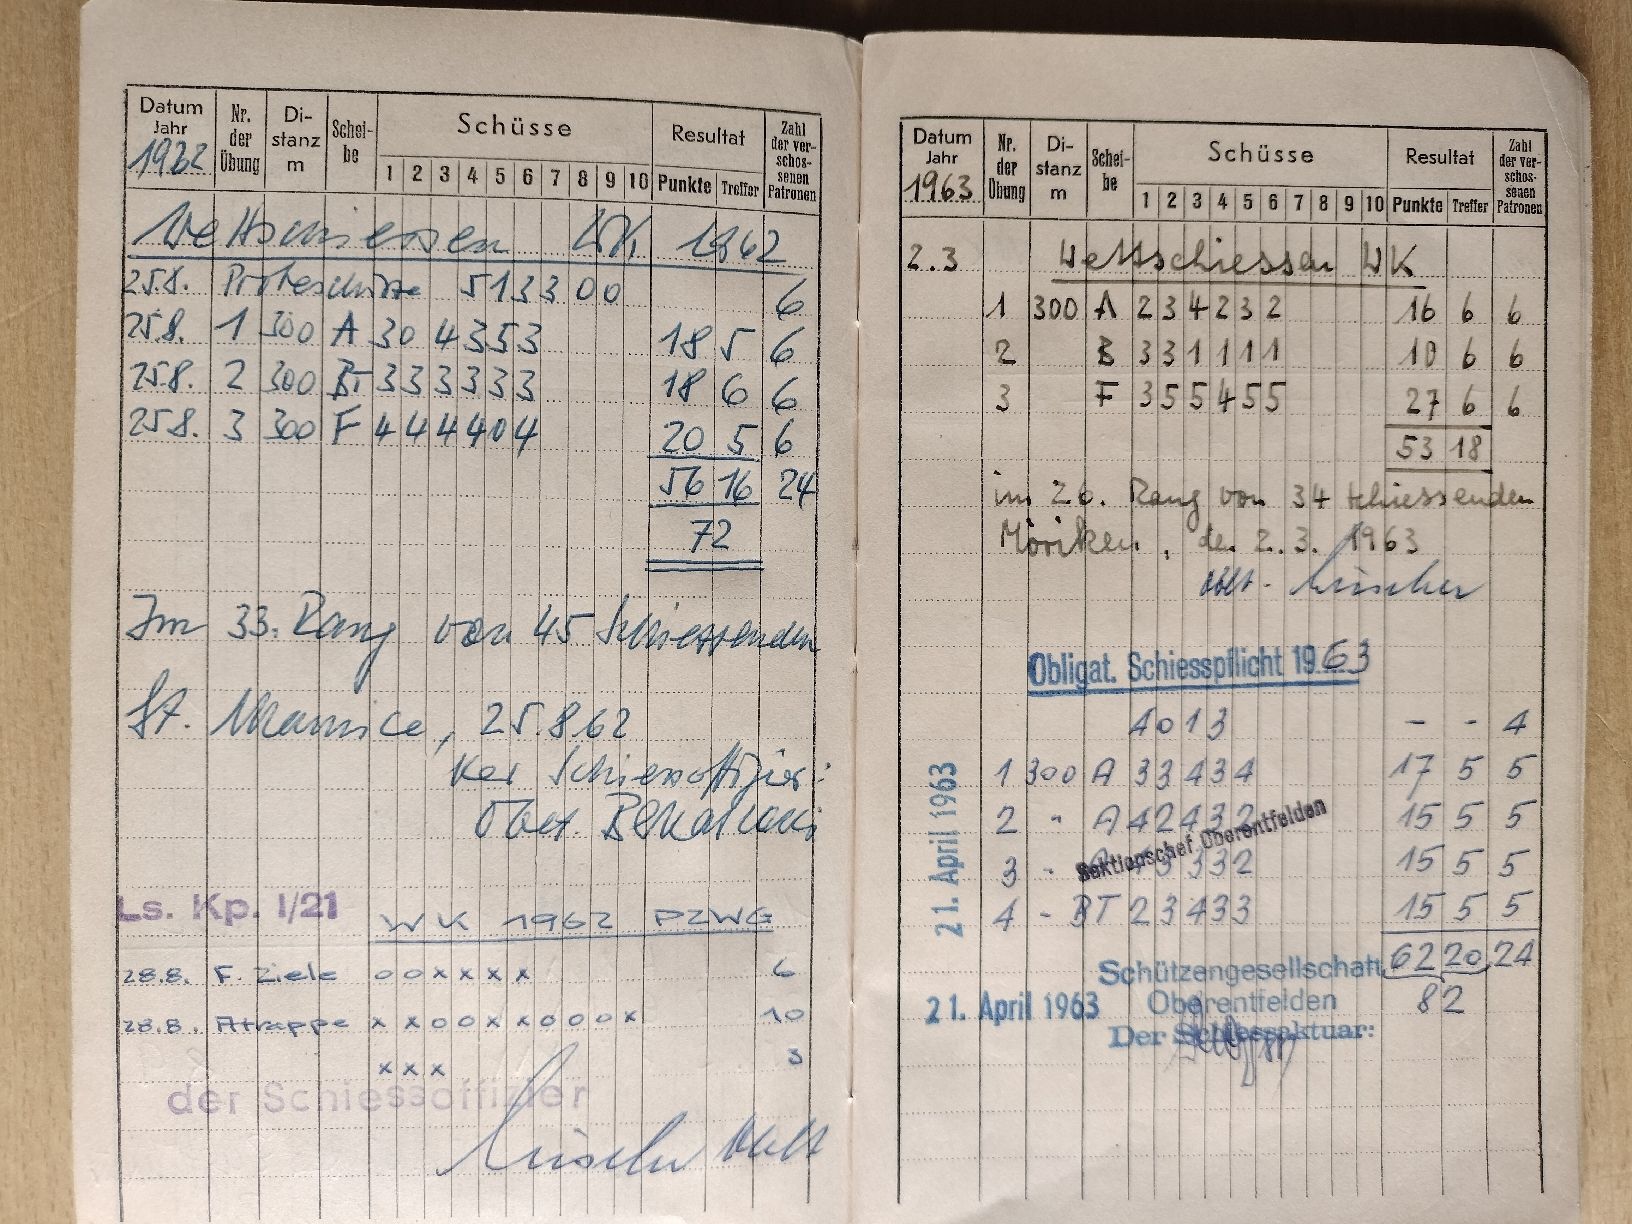 Datum Jahr 1962 Nr. der Übung Di- stanz m Schei- be Schüsse Resultat Zahl der ver- schos- senen Patronen
1 2 3 4 5 6 7 8 9 10 Punkte Treffer
Wettschiessen WK 1962
25.8. Probeschüsse 5 1 3 3 0 0 6
25.8. 1 300 A 3 0 4 3 5 3 18 5 6
25.8. 2 300 BT 3 3 3 3 3 3 18 6 6
25.8. 3 300 F 4 4 4 4 0 4 20 5 6
56 16 24
72
Im 33. Rang von 45 Schiessenden
St. Maurice, 25.8.62
Der Schiessoffizier:
Ls. Kp. I/21
WK 1962 PZWG
28.8. F. Ziele o o x x x x 6
28.8. Atrappe x x o o x x o o o x 10
x x x 3
der Schiessoffizier
Lüscher Oblt
Datum Jahr 1963 Nr. der Übung Di- stanz m Schei- be Schüsse Resultat Zahl der ver- schos- senen Patronen
1 2 3 4 5 6 7 8 9 10 Punkte Treffer
2.3 Wettschiessen WK
1 300 A 2 3 4 2 3 2 16 6 6
2 B 3 3 1 1 1 1 10 6 6
3 F 3 5 5 4 5 5 27 6 6
53 18
im 26. Rang von 34 schiessenden
Möriken, den 2.3.1963
Oblt. Lüscher
Obligat. Schiesspflicht 1963
4 0 1 3 - - 4
1 300 A 3 3 4 3 4 17 5 5
2 " A 4 2 4 3 2 15 5 5
3 - A 3 3 2 15 5 5
4 - BT 2 3 4 3 3 15 5 5
21. April 1963
Sektionschef Oberentfelden
62 20 24
82
Schützengesellschaft
Oberentfelden
21. April 1963
Der Schiessaktuar: